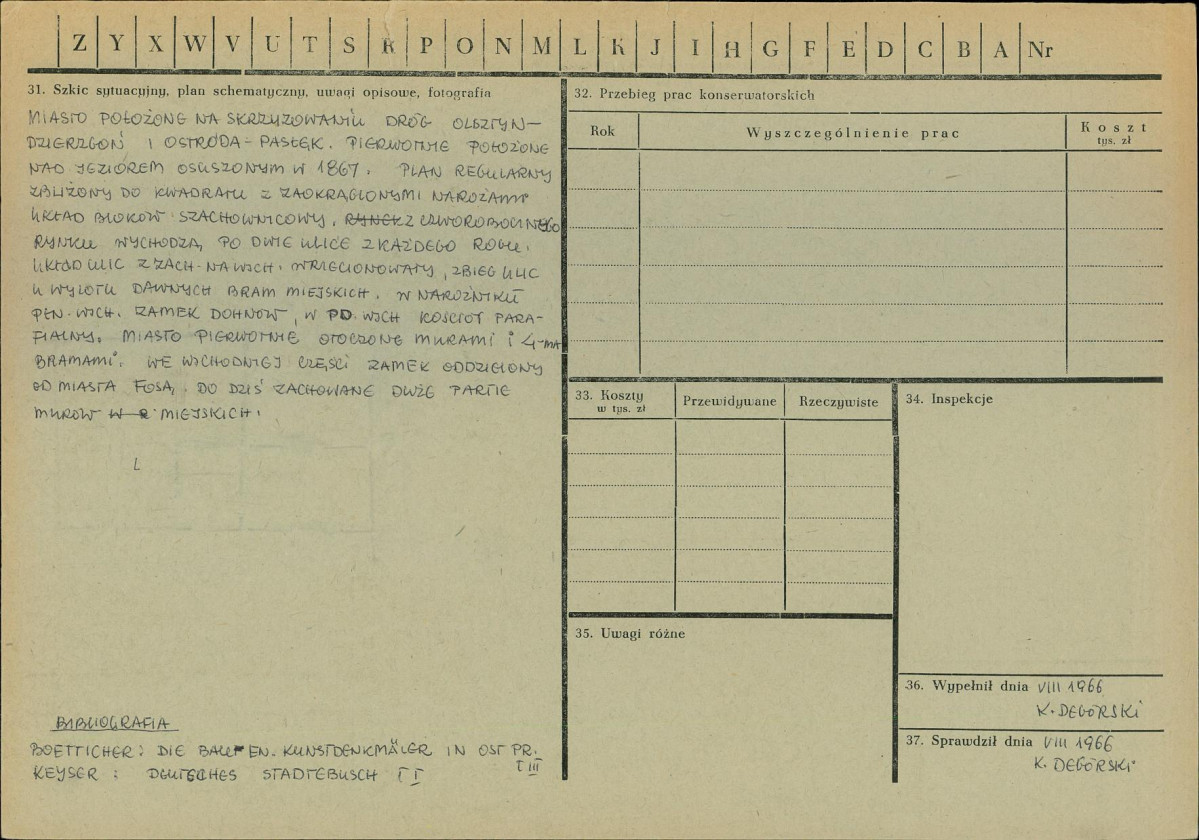 Z Y X W V U T S R P O N M L K J I H G F E D C B A Nr
31. Szkic sytuacyjny, plan schematyczny, uwagi opisowe, fotografia
MIASTO POŁOŻONE NA SKRZYŻOWANIU DRÓG OLSZTYN-
DZIERZGOŃ I OSTRÓDA - PASŁĘK. PIERWOTNIE POŁOŻONE
NAD JEZIOREM OSUSZONYM W 1867. PLAN REGULARNY
ZBLIŻONY DO KWADRATU Z ZAOKRĄGLONYMI NAROŻAMI
UKŁAD BLOKÓW SZACHOWNICOWY. RYNEK Z CZWOROBOCZNEGO
RYNKU WYCHODZĄ PO DWIE ULICE Z KAŻDEGO ROGU.
UKŁAD ULIC Z ZACH. NA WSCH. WRZECIONOWATY, ZBIEG ULIC
U WYLOTU DAWNYCH BRAM MIEJSKICH. W NAROŻNIKU
PŁN. WSCH. ZAMEK DOHNÓW, W PD WSCH KOŚCIÓŁ PARA-
FIALNY. MIASTO PIERWOTNIE OTOCZONE MURAMI I 4-MA
BRAMAMI. WE WSCHODNIEJ CZĘŚCI ZAMEK ODDZIELONY
OD MIASTA FOSĄ, DO DZIŚ ZACHOWANE DUŻE PARTIE
MURÓW MIEJSKICH.
L
BIBLIOGRAFIA
BOETTICHER: DIE BAU EN. KUNSTDENKMÄLER IN OST PR.
T III
KEYSER: DEUTSCHES STADTEBUSCH T I
32. Przebieg prac konserwatorskich
Rok
Wyszczególnienie prac
Koszt
tys. zł
33. Koszty
w tys. zł
Przewidywane
Rzeczywiste
34. Inspekcje
35. Uwagi różne
36. Wypełnił dnia VIII 1966
K. DEGÓRSKI
37. Sprawdził dnia VIII 1966
K. DEGÓRSKI